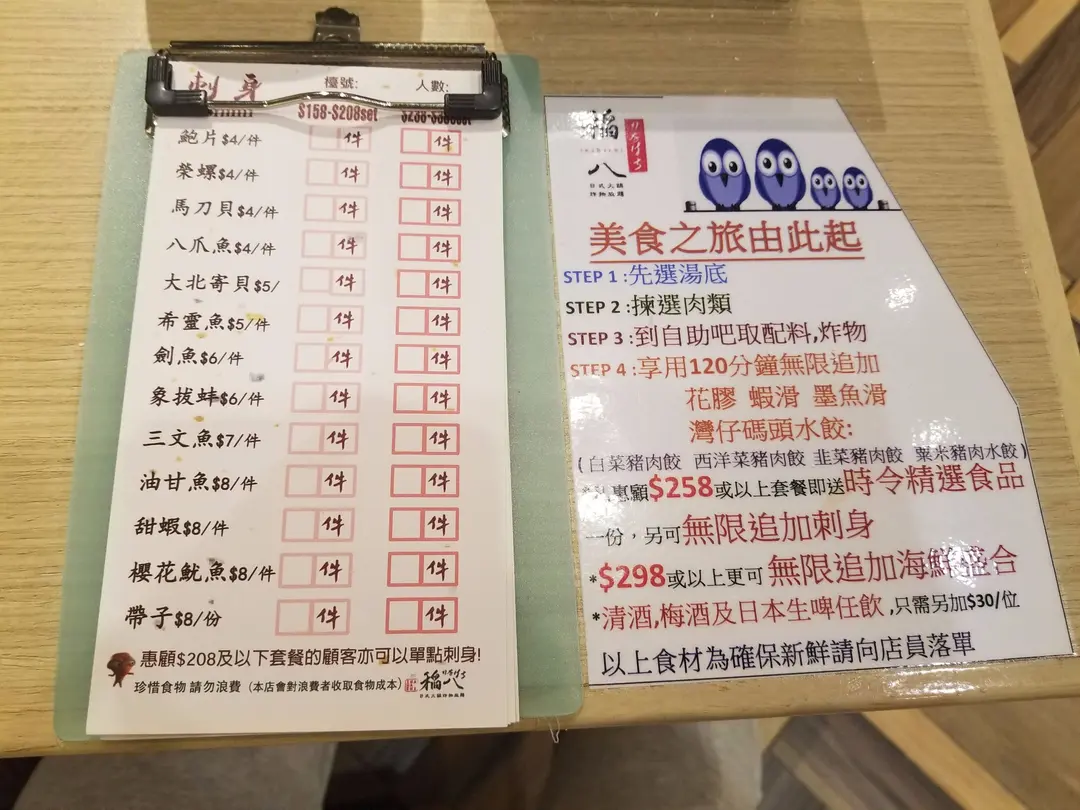 刺身 檯號: 人數:
$158-$208set
鮑片$4/件 件 件
榮螺$4/件 件 件
馬刀貝$4/件 件 件
八爪魚$4/件 件 件
大北寄貝$5/ 件 件
希靈魚$5/件 件 件
劍魚$6/件 件 件
象拔蚌$6/件 件 件
三文魚$7/件 件 件
油甘魚$8/件 件 件
甜蝦$8/件 件 件
櫻花魷魚$8/件 件 件
帶子$8/份 件 件
惠顧$208及以下套餐的顧客亦可以單點刺身!
珍惜食物 請勿浪費 (本店會對浪費者收取食物成本)
稲八
日式火鍋
稲
八
日式火鍋
美食之旅由此起
STEP 1 :先選湯底
STEP 2 :揀選肉類
STEP 3 :到自助吧取配料,炸物
STEP 4 :享用120分鐘無限追加
花膠 蝦滑 墨魚滑
灣仔碼頭水餃:
(白菜豬肉餃 西洋菜豬肉餃 韭菜豬肉餃 粟米豬肉水餃)
惠顧$258或以上套餐即送時令精選食品
一份，另可無限追加刺身
*$298或以上更可無限追加海鮮盛合
*清酒,梅酒及日本生啤任飲,只需另加$30/位
以上食材為確保新鮮請向店員落單